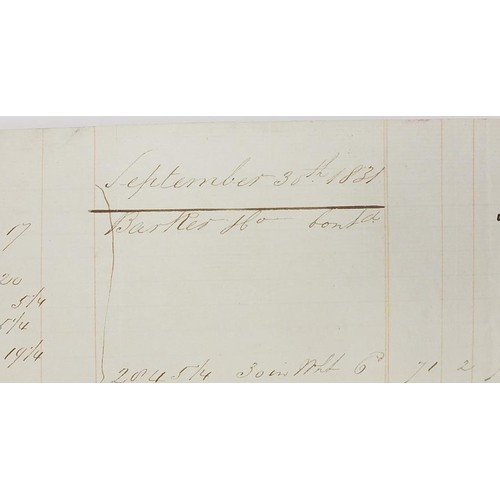 September 30th 1831
17 Barker Ho contd
20
5 1/4
5 1/4
19 1/4
284 5 1/4 30 in Wht 6d 71 2